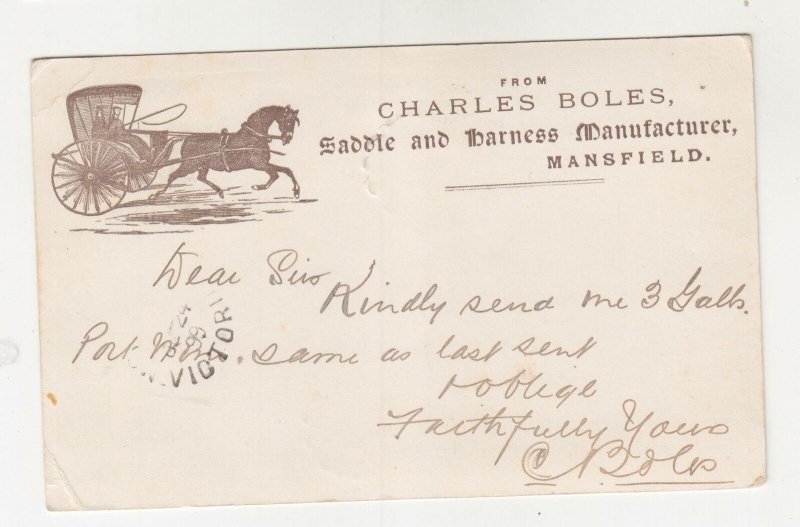 FROM
CHARLES BOLES,
Saddle and Harness Manufacturer,
MANSFIELD.
Dear Sir
Kindly send me 3 Galls.
Port Wine. same as last sent
& oblige
Faithfully Yours
C Boles
24
99
VICTORI